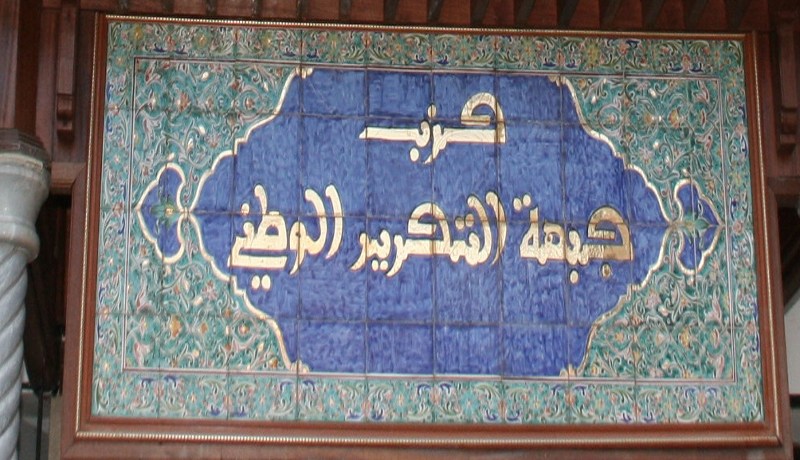 حزب
جبهة التحرير الوطني